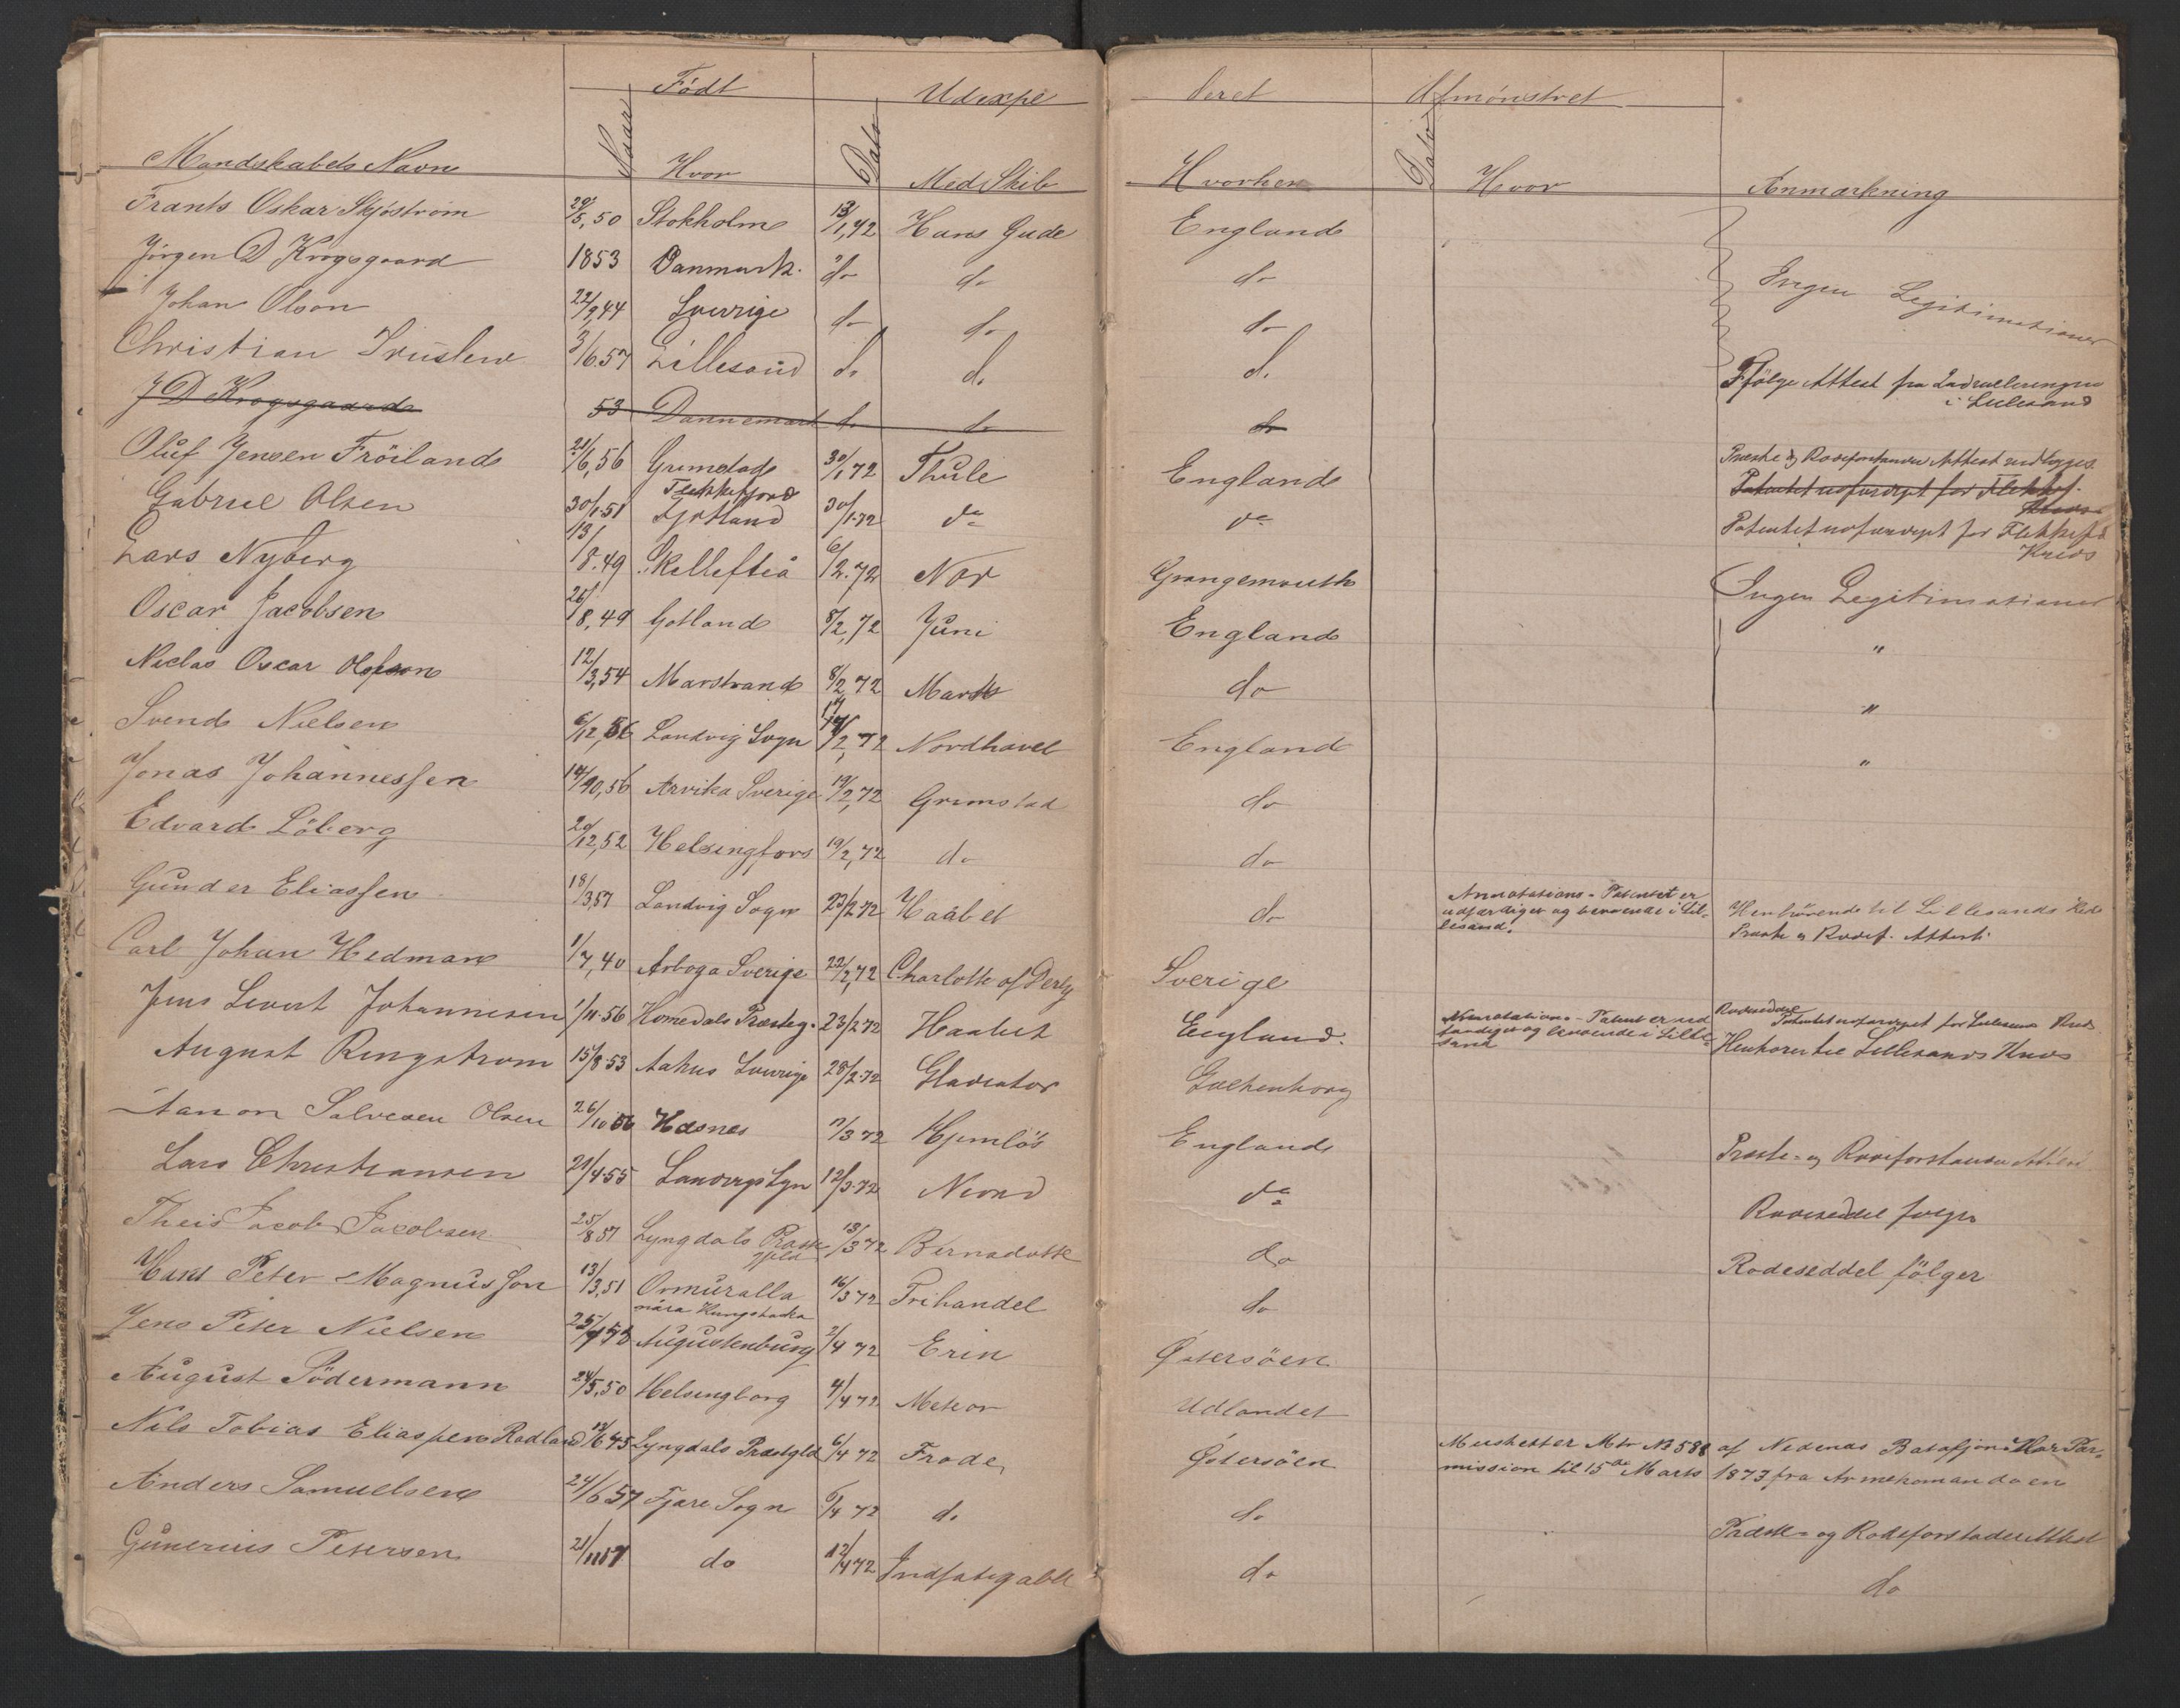 Født Udexpe deret Afmønstret
Mandskabets Navn Naar Hvor Dato Med Skib Hvorhen Dato Hvor Anmærkning
Frants Oskar Skjöström 29/5,50 Stokholm 13/1,72 Hans Gude England
Jørgen D Krogsgaard 1853 Danmark do do do Ingen Legitimationer
Johan Olson 22/9,44 Sverige do do do
Christian Truslew 3/6.57 Lillesand do do do Ffølge Attest fra Indrulleringen
i Lillesand
J D Krogsgaard 53 Dannemark do do do
Oluf Jensen Fröiland 21/6,56 Grimstad 30/1 72 Thule England Præste og Rodeforstander Attest
Flekkefjord Patentet udfærdiget for Flekkef.
Kreds
Gabriel Olsen 30/1.51 30/1.72 do do Patentet udfærdiget for Flekkefd
Kreds
Lars Nyberg 13/8.49 Skellefteå 6/2.72 Nor Grangemouth Ingen Legitimationer
Oscar Jacobsen 26/8,49 Gotland 8/2,72 Juni England "
Niclas Oscar Olofsson 12/3,54 Marstrand 8/2,72 Marts do "
Svend Nielsen 6/12,56 Landvig Sogn 17/2,72 Nordhavet England "
Jonas Johannessen 14/10,56 Arvika Sverige 19/2,72 Grimstad do
Edvard Löberg 20/12,52 Helsingfors 19/2,72 do do
Gunder Eliassen 18/3 57 Landvig Sogn 23/2 72 Haabet do Annotations-Patentet er
udfærdiget og beroende i Lil-
lesand. Henhörende til Lillesands Kreds
Præste og Rodef. Attest.
Carl Johan Hedman 1/7,40 Arboga Sverige 22/2,72 Charlotte af Derby Sverige
Jens Severt Johannesen 1/11.56 Homedals Præsteg. 23/2 72 Haabet England. Annotations-Patent er ud
færdiget og beroende i Lille-
sand Rodeseddel
Patentet udfærdiget for Lillesands Kreds
Henhører til Lillesands Kreds
August Ringstrom 15/8 53 Aahus Sverige 28/2.72 Gladiator Gothenborg
Aanon Salvesen Olsen 26/10 56 Hæsnes 11/3 72 Hjemlös England Præste- og Rodeforstander Attest
Lars Christiansen 21/4.55 Landvigs Sgn 12/3.72 do Rodeseddel følger
Theis Jacob Jacobsen 25/8 57 Lyngdals Præste
gjeld 13/3 72 Bernadotte do Rodeseddel fölger
Hans Peter Magnusson 13/3,51 Ormuralla
nära Kungsbacka 16/3 72 Frihandel do
Jens Peter Nielsen 25/4 53 Augustenburg 2/4 72 Erin Østersöen
August Södermann 24/5,50 Helsingborg 4/4 72 Meteor Udlandet
Nils Tobias Eliassen Rodland 12/6 45 Lyngdals Præstgld 6/4 72 Frode Østersöen Musketter Mtr No 588 af Nedenæs Batafjon. Har Per-
mission til 15de Marts 1873 fra Armekomandoen
Anders Samuelsen 24/6 57 Fjære Sogn 6/4 72 do do Præste- og Rodeforstader Attest
Gunerius Petersen 21/11 57 do 12/4 72 Indfatigable do do